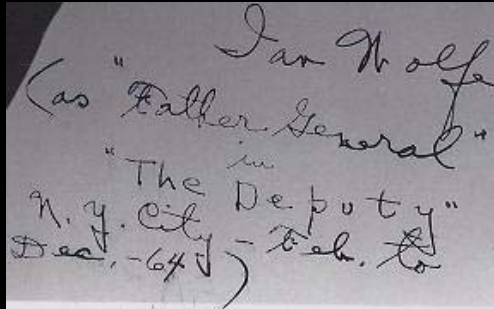 Ian Wolfe
(as "Father General"
in
"The Deputy"
N.Y. City - Feb. to
Dec. -64)